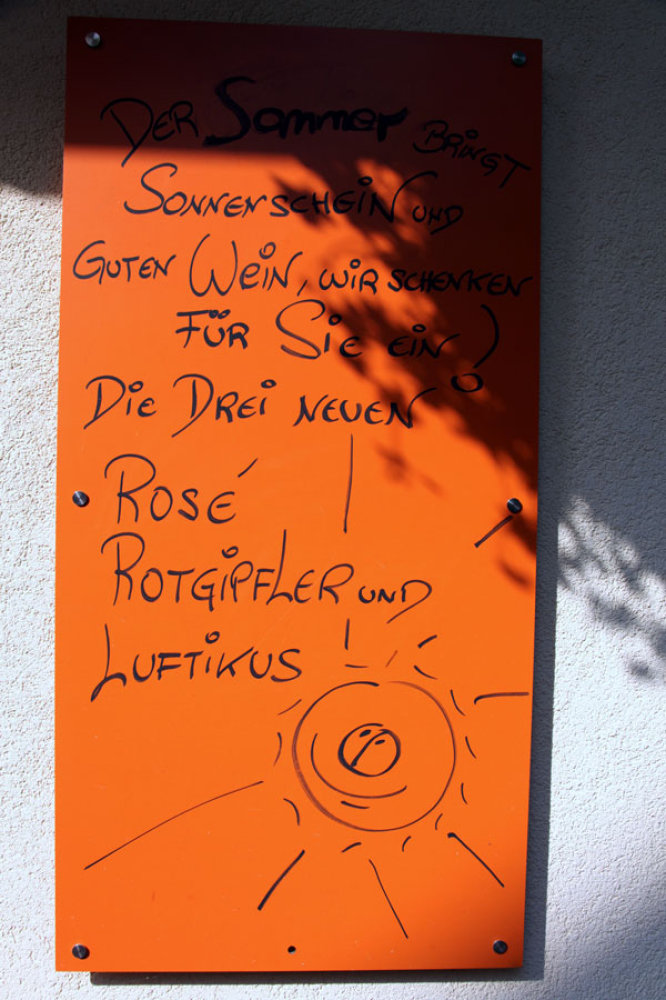 Der Sommer bringt
Sonnenschein und
Guten Wein, wir schenken
für Sie ein!
Die Drei neuen
Rosé
Rotgipfler und
Luftikus